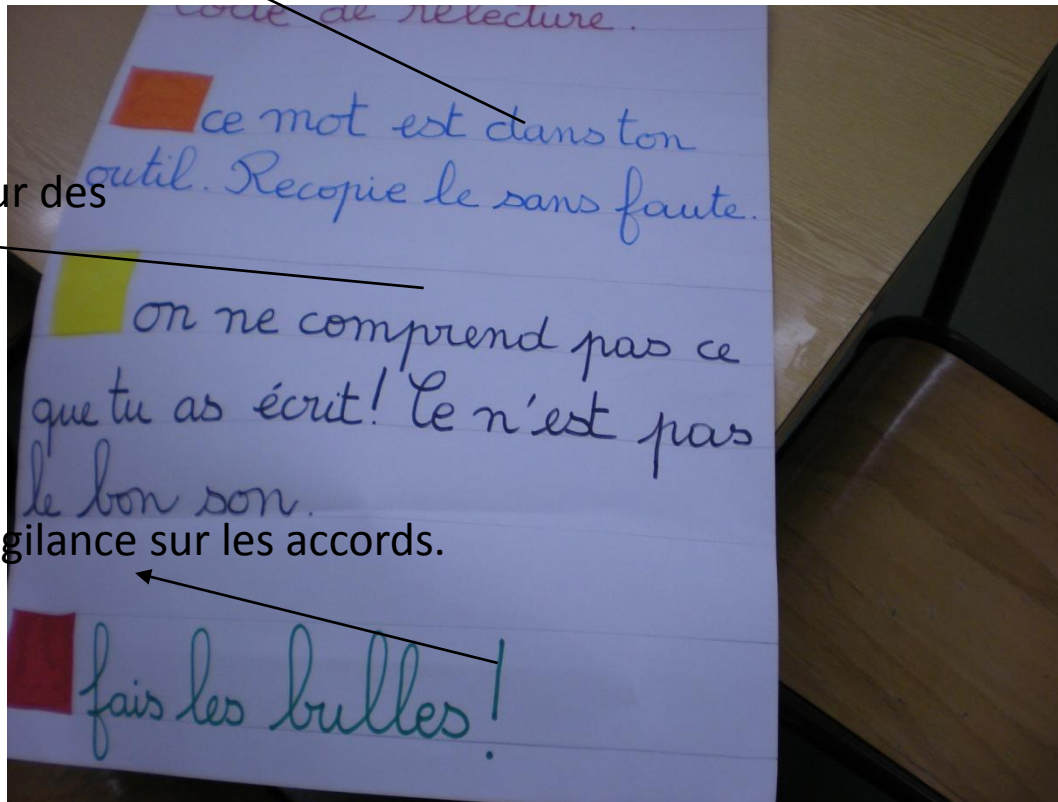 code de relecture.
ce mot est dans ton
outil. Recopie le sans faute.
ur des
on ne comprend pas ce
que tu as écrit! Ce n'est pas
le bon son.
gilance sur les accords.
fais les bulles!